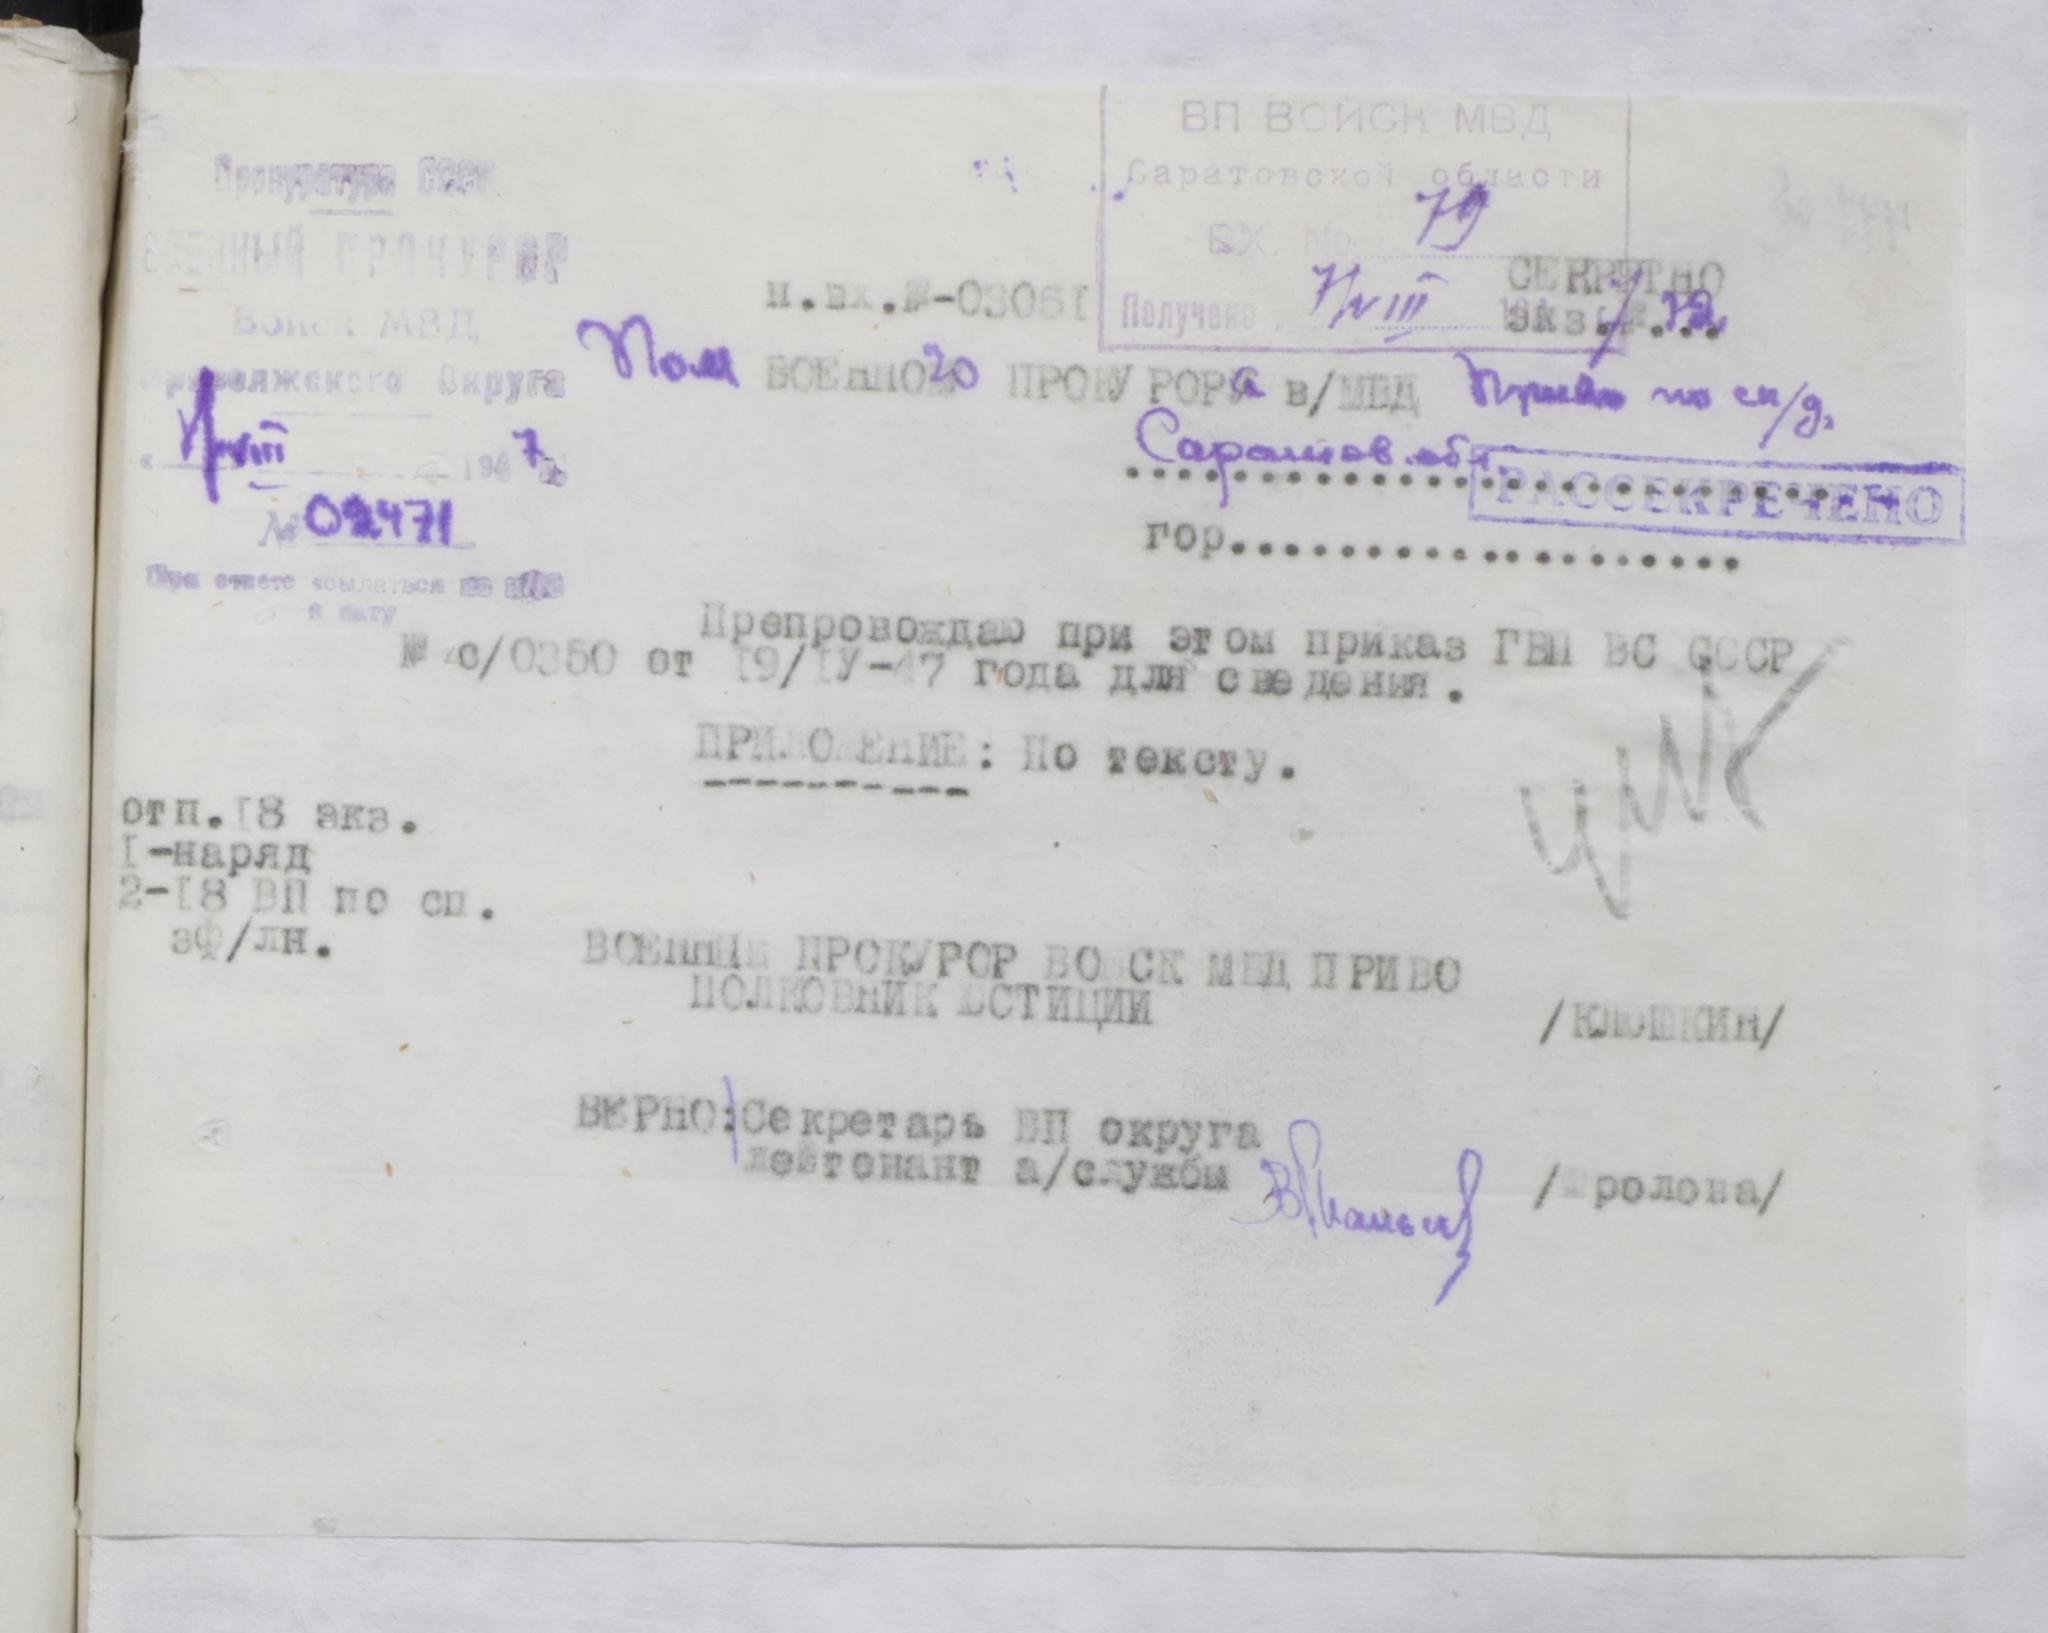 Прокуратура СССР
ВОЕННЫЙ ПРОКУРОР
Войск МВД
Приволжского Округа
194 7
№ 02471
При ответе ссылаться на
и дату
ВП ВОЙСК МВД
Саратовской области
ВХ. №. 79
Получено
н.вх.№-03061
СЕКРЕТНО
экз.№
Пом ВОЕННОго ПРОКУРОРа в/МВД Приво по сп/д.
Саратов.обл.
РАССЕКРЕЧЕНО
гор...................
Препровождаю при этом приказ ГВП ВС СССР
№ с/0350 от 19/IУ-47 года для сведения.
ПРИЛОЖЕНИЕ: По тексту.
отп.I8 экз.
I-наряд
2-I8 ВП по сп.
эф/лн.
ВОЕННЫЙ ПРОКУРОР ВОЙСК МВД ПРИВО
ПОЛКОВНИК ЮСТИЦИИ /КЛЮШКИН/
ВЕРНО: Секретарь ВП округа
лейтенант а/службы /Фролова/